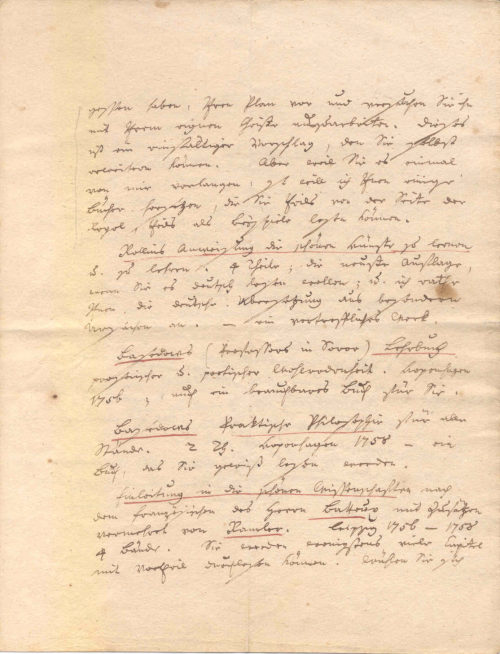 gessen haben, Ihren Plan vor und versuchen Sie ihn
mit Ihrem eignen Geiste auszuarbeiten. Dieses
ist ein einfältiger Vorschlag, den Sie selbst
erweitern können. Aber weil Sie es einmal
von mir verlangen, so will ich Ihnen einige
Bücher hersetzen, die Sie theils von der Seite der
Regel, theils als Beyspiele lesen können.
Rollins Anweisung die schönen Künste zu lernen
u. zu lehren. 4 Theile; die neuste Auflage,
wenn Sie es deutsch lesen wollen; u. ich rathe
Ihnen die deutsche Übersetzung aus besondern
Ursachen an. — ein vortreffliches Werk.
Basedows (Professors in Soroe) Lehrbuch
prosaischer u. poetischer Wohlredenheit. Kopenhagen
1756; auch ein brauchbares Buch für Sie.
Basedows Praktische Philosophie für alle
Stände. 2 Th. Kopenhagen 1758 — ein
Buch, das Sie gewiß lesen werden.
Einleitung in die schönen Wissenschaften nach
dem französischen des Herrn Batteux mit Zusätzen
vermehret von Ramler. Leipzig 1756 — 1758
4 Bände. Sie werden wenigstens viele Capitel
mit Vortheil durchlesen können. Wählen Sie sich